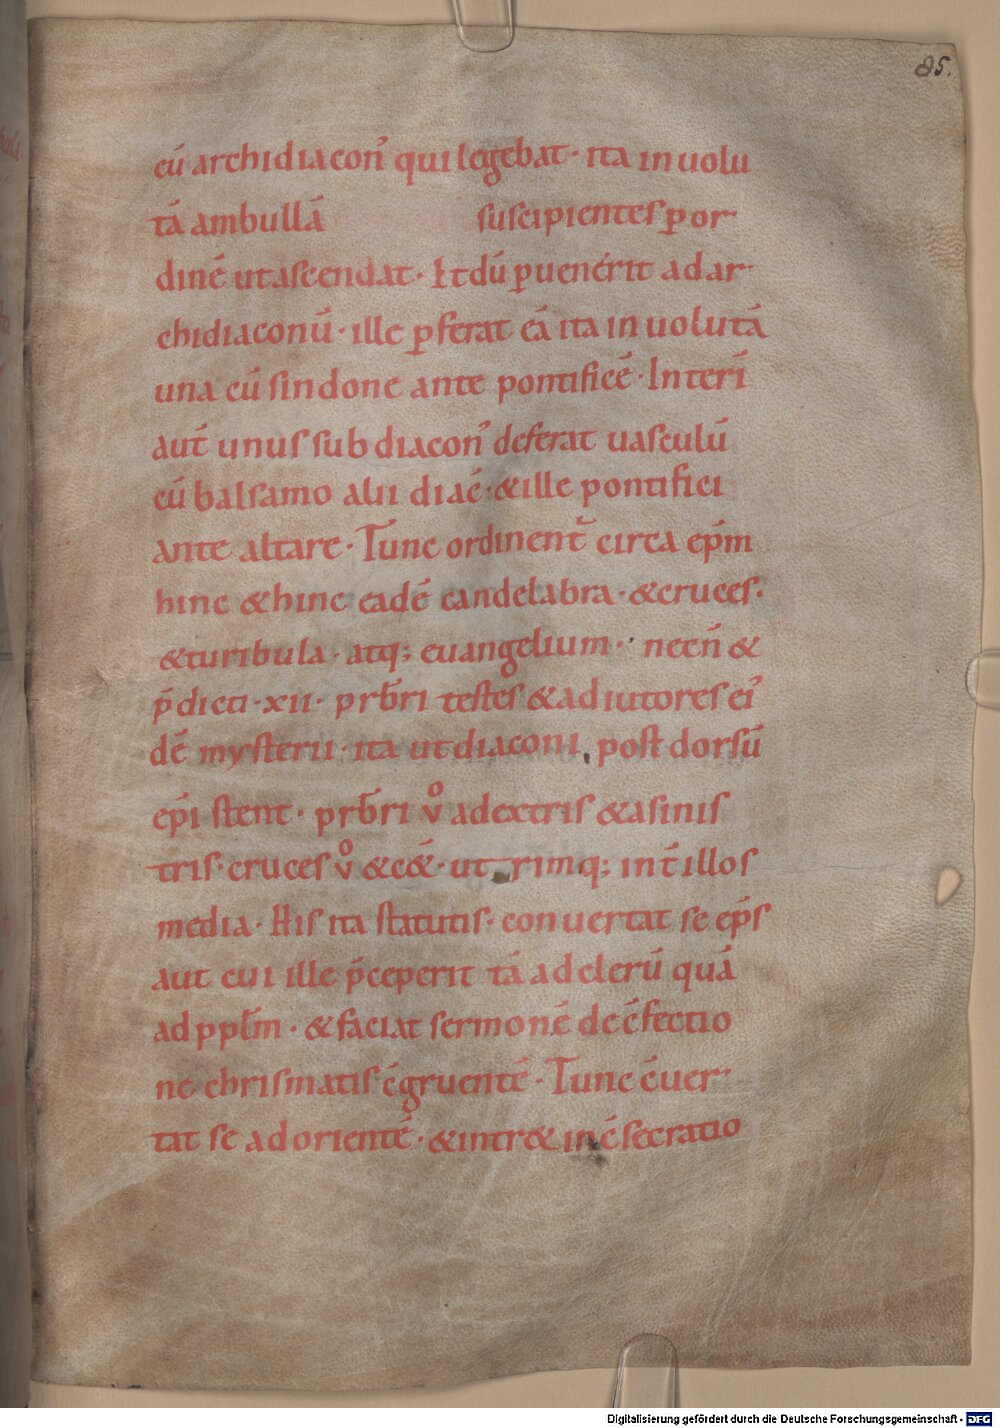 85.
cū archidiacon᾽ qui legebat· ita inuolu
tā ambullā suscipientes p̲or·
dinē ut ascendat· Et dū p̲uenerit ad ar·
chidiaconū· ille p̲ferat eā ita inuolutā
una cū sindone ante pontificē· Interī
aut̄ unus subdiacon᾽ deferat uasculū
cū balsamo alii diac̄· &ille pontifici
ante altare· Tunc ordinent᷑ circa ep̄m
hinc &hinc eadē candelabra· &cruces·
&turibula· atq; euangelium· necn̄ &
p̄dicti·xii· prb̄ri testes &adiutores ei᾽
dē mysterii· ita ut diaconi, post dorsū
ep̄i stent· prb̄ri vͦ adextris &asinis
tris· cruces vͦ &cet̄&· utrimq; int̄ illos
media· His ita statutis· conuertat se ep̄s
aut cui ille p̄ceperit tā ad clerū quā
ad ppl̄m· &faciat sermonē de c̄fectio
ne chrismatis c̄gruentē· Tunc c̄uer·
tat se ad orientē· &intr& in c̄secratio
Digitalisierung gefördert durch die Deutsche Forschungsgemeinschaft - DFG